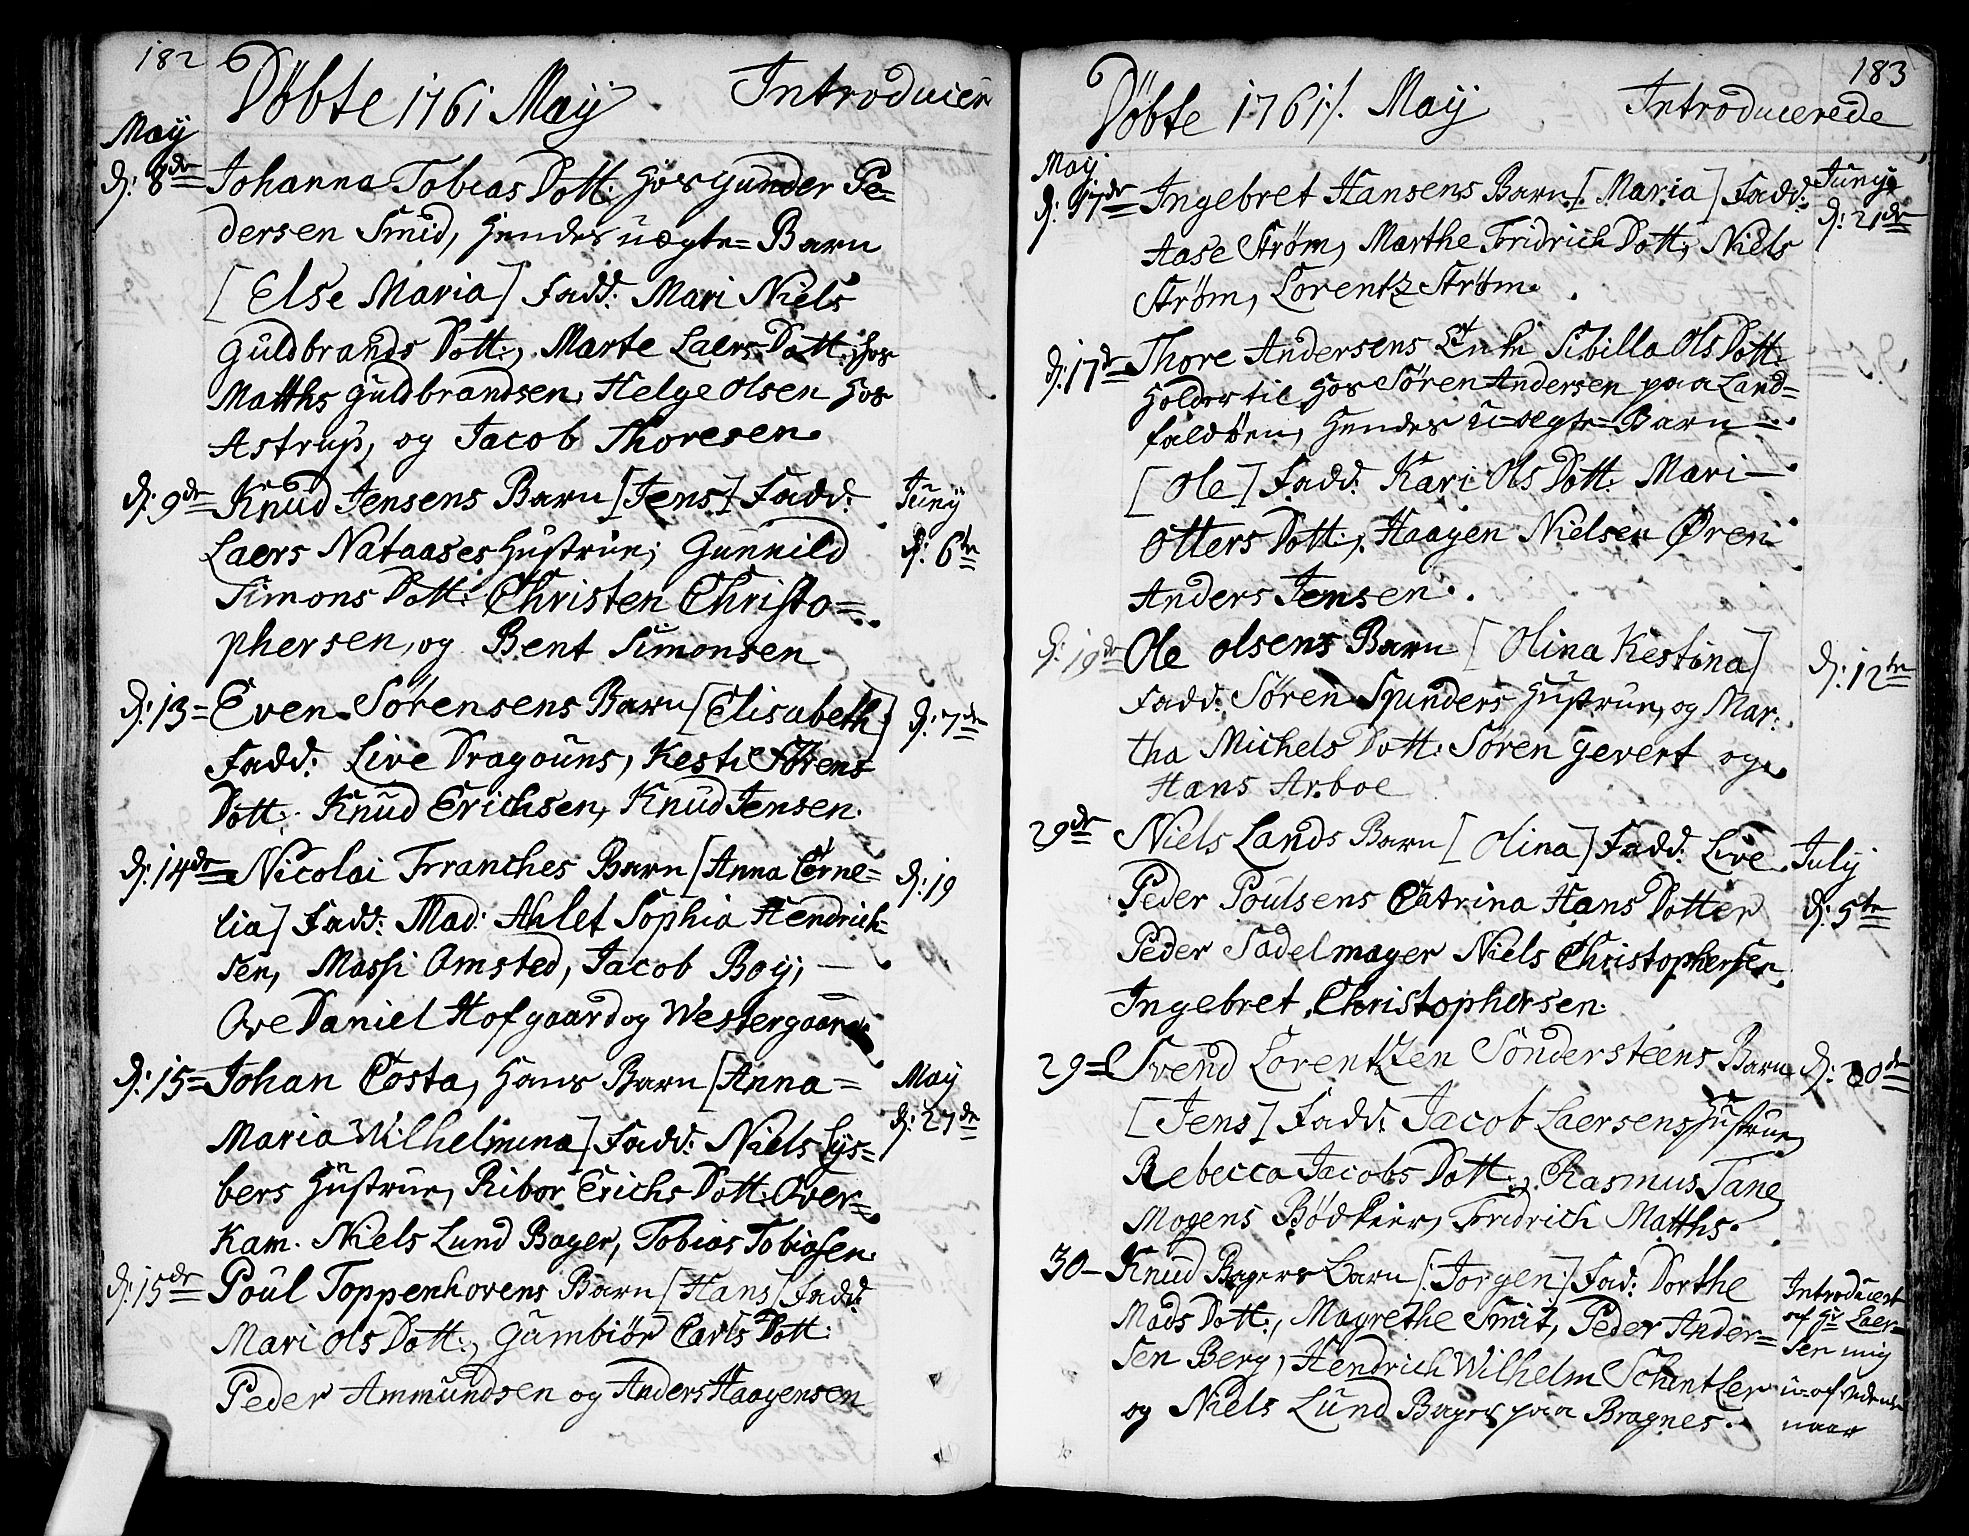 182
Döbte 1761 May Introducer
May
d: 8de Johanna Tobias Dott: hos Gunder Pe=
dersen Smid, hendes uægte= Barn
[Else Maria] Fadd: Mari Niels
Guldbrands Dott:, Marte Laers Dott: hos
Matths Guldbrandsen, Helge Olsen hos
Astrup, og Jacob Thoresen
d: 9de Knud Jensens Barn [Jens] Fadd: Juny
Laers Nataases Hustrue, Gunnild d: 6te
Simons Dott: Christen Christo=
phersen, og Bent Simonsen
d: 13= Even Sörensens Barn [Elisabeth] d: 7de
Fadd: Live Dragouns, Kesti Sörens
Dott: Knud Erichsen, Knud Jensen.
d: 14de Nicolai Franches Barn [Anna Corne= d: 19
lia] Fadd: Mad: Ahlet Sophia Hendrich=
sen, Massi Omsted, Jacob Boy, —
Ove Daniel Hofgaard og Westergaard
d: 15= Johan Costa, hans Barn [Anna= May
Maria Wilhelmina] Fadd: Niels Lys= d: 27de
bers Hustrue, Ribor Erichs Dott: Over=
Kam. Niels Lund Bager, Tobias Tobiasen.
d: 15de Poul Toppenhovens Barn [Hans] Fadd:
Mari Ols Dott:, Gumbiör Carls Dott:
Peder Ammundsen og Anders Haagensen
183
Döbte 1761/. May Introducerede
May
d: 17de Ingebret Hansens Barn [Maria] Fadd: Juny
Aase Strøm, Marthe Fridrich Dott:, Niels d: 21de
Strøm, Lorentz Strøm.
d: 17de Thore Andersens Enke Sibilla Ols Dott:
holder til hos Sören Andersen paa Land=
faldöen, hendes u-ægte= Barn
[Ole] Fadd: Kari Ols Dott: Mari —
Otters Dott:, Haagen Nielsen Øren
Anders Jensen.
d: 19de Ole Olsens Barn [Olina Kestina] d: 12te
Fadd: Søren Spunders Hustrue, og Mar:
tha Michels Dott: Sören Gevert og
Hans Arboe
29de Niels Lands Barn [Olina] Fadd: Live July
Peder Poulsens Catrina Hans Dotter d: 5te
Peder Sadelmager Niels Christophersen
Ingebret Christophersen.
29= Svend Lorentzen Söndersteens Barn d: 20de
[Jens] Fadd: Jacob Laersens Hustrue
Rebecca Jacobs Dott:, Rasmus Tane
Mogens Bödkier, Fridrich Matths.
30 — Knud Bagers Barn [:Jorgen:] Fad: Dorthe Introducert
Mads Dott:, Magrethe Smit, Peder Ander= af Hr Laer=
sen Berg, Hendrich Wilhelm Schantler sen mig
og Niels Lund Bager paa Bragnes. u-afvidende
naar